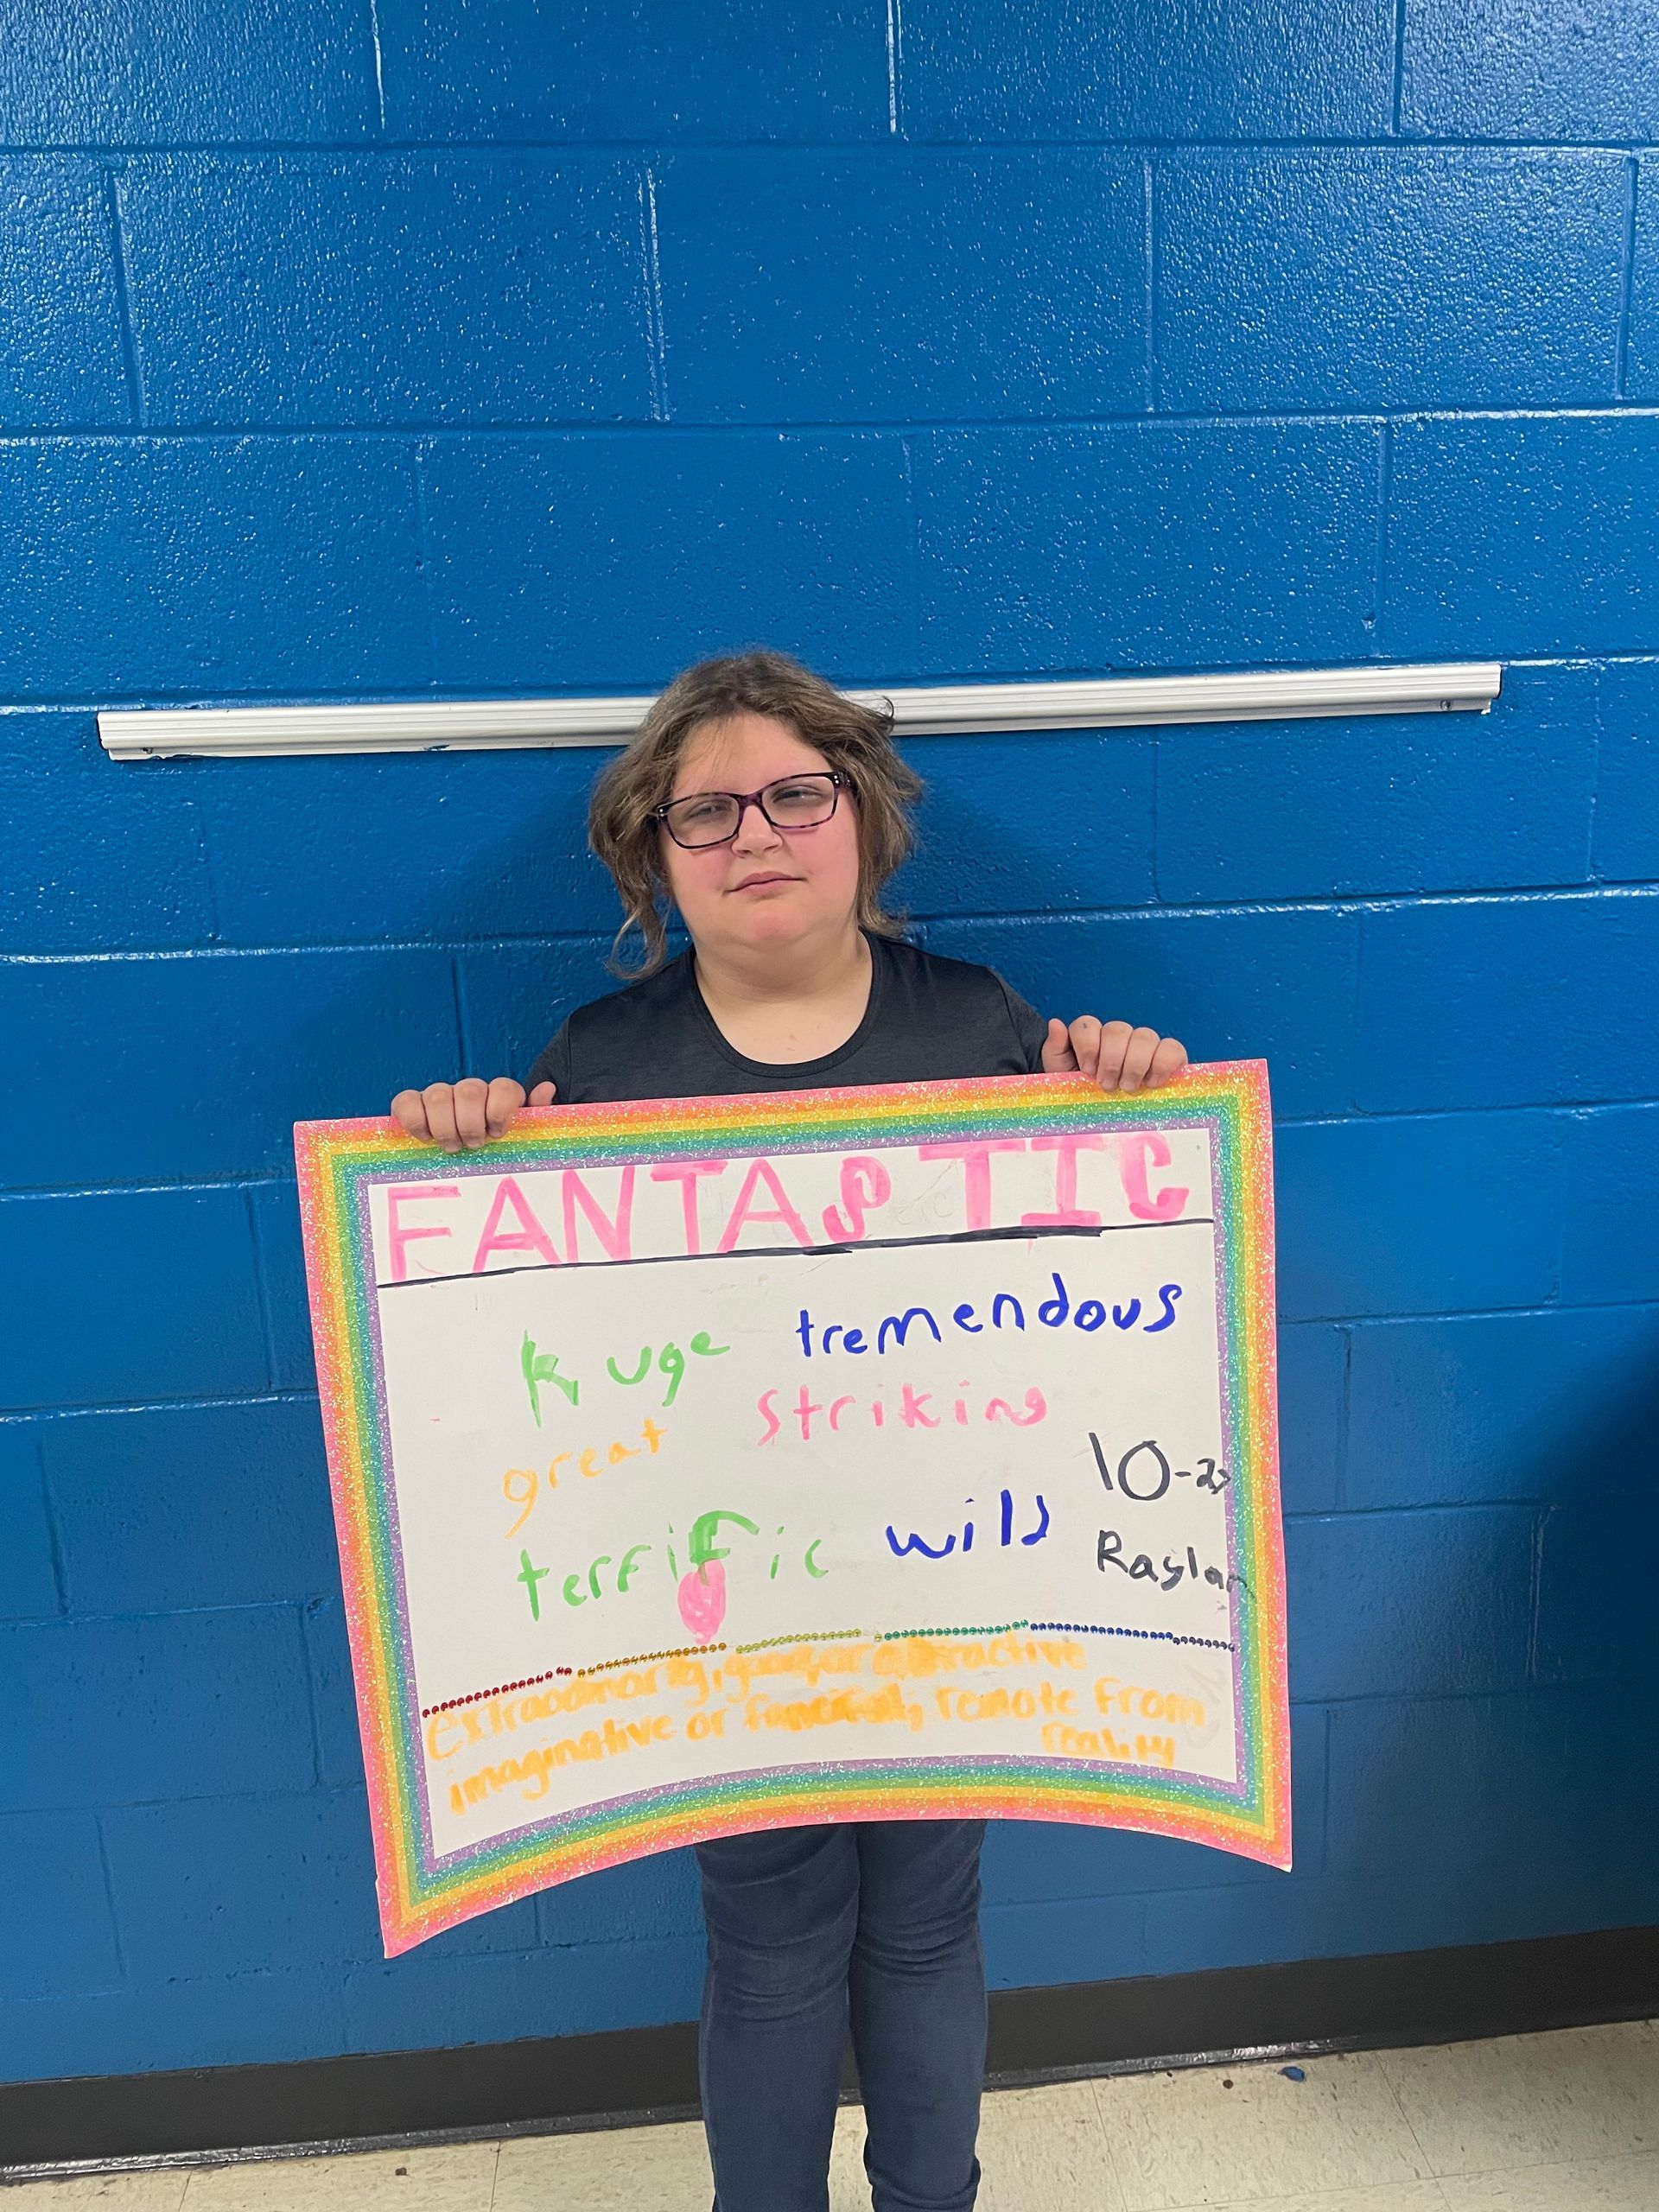 FANTASTIC
huge tremendous
great striking
10-2
terrific wild
Raylan
extraodinarly, good or attractive
imaginative or fanciful, remote from
reality